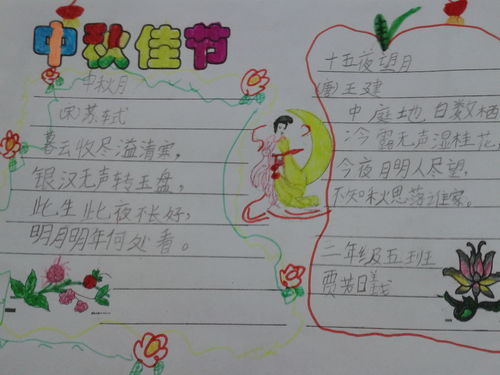 中秋佳节
中秋月
(宋)苏轼
暮云收尽溢清寒,
银汉无声转玉盘,
此生此夜不长好,
明月明年何处看。
十五夜望月
(唐)王建
中庭地白数栖
冷露无声湿桂花,
今夜月明人尽望,
不知秋思落谁家。
二年级五班
贾若曦